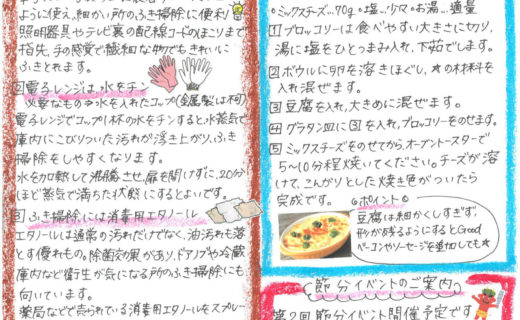 ように使え、細かい所のふき掃除に便利
照明器具やテレビ裏の配線コードのほこりまで
指先、手の感覚で繊細な物でもきれいに
ふきとれます。
②電子レンジは水をチン
必要なもの⇒水を入れたコップ(金属製は不可)
電子レンジでコップ1杯の水をチンすると、水蒸気で
庫内にこびりついた汚れが浮き上がり、ふき
掃除をしやすくなります。
水を加熱して沸騰させ、扉を開けずに、20分
ほど蒸気で満ちた状態にするとよいです。
③ふき掃除には消毒用エタノール
エタノールは通常の汚れだけでなく、油汚れも落
とす優れもの。除菌効果があり、ドアノブや冷蔵
庫内など衛生が気になる所のふき掃除にも
向いています。
薬局などで売られている消毒用エタノールをスプレー
・ミックスチーズ…70g ・塩…少々 ・お湯…適量
1 ブロッコリーは食べやすい大きさに切り、
湯に塩をひとつまみ入れ、下茹でします。
2 ボウルに卵を溶きほぐし、★の材料を
入れ混ぜます。
3 豆腐を入れ、大きめに混ぜます。
4 グラタン皿に3を入れ、ブロッコリーをのせます。
5 ミックスチーズをのせてから、オーブントースターで
5~10分程焼いてください。チーズが溶
けて、こんがりとした焼き色がついたら
完成です。
◎ポイント◎
豆腐は細かくしすぎず、
形が残るようにするとGood
ベーコンやソーセージを追加しても★
節分イベントのご案内
第2回節分イベント開催予定です